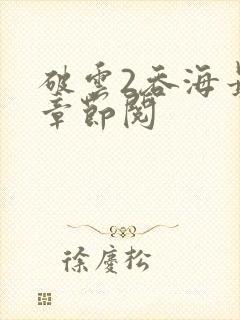 破雲2吞海最
章節閱
徐慶松